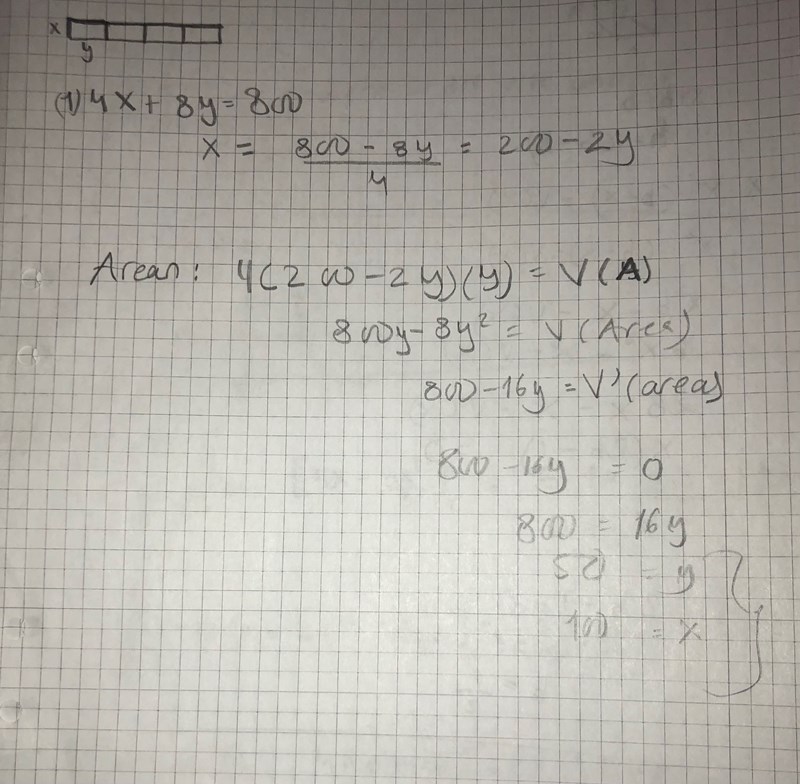 x
y
(1) 4x + 8y = 800
x = \frac{800 - 8y}{4} = 200 - 2y
Arean: 4(200 - 2y)(y) = V(A)
800y - 8y² = V(Area)
800 - 16y = V'(area)
800 - 16y = 0
800 = 16y
50 = y
100 = x